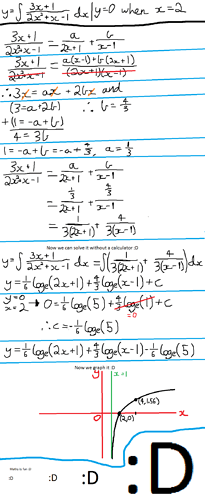 y=∫ 3x+1/2x²+x-1 dx | y=0 when x=2
3x+1/2x²+x-1 = a/2x+1 + b/x-1
3x+1/2x²x-1 = a(x-1)+b(2x+1)/(2x+1)(x-1)
∴3x = ax + 2bx and
(3=a+2b) ∴ b=4/3
+(1=-a+b)
4=3b
1=-a+b=-a+4/3, a=1/3
3x+1/2x²x-1 = a/2x+1 + b/x-1
= 1/3/2x+1 + 4/3/x-1
= 1/3(2x+1) + 4/3(x-1)
Now we can solve it without a calculator :D
y=∫ 3x+1/2x²+x-1 dx =∫(1/3(2x+1) + 4/3(x-1))dx
y=1/6 loge(2x+1)+4/3 loge(x-1)+c
y=0 x=2 → 0=1/6 loge(5)+4/3 loge(1)+c
=0
∴c=-1/6 loge(5)
y=1/6 loge(2x+1)+4/3 loge(x-1)-1/6 loge(5)
Now we graph it :D
y x=1
(4,1.56)
0 (2,0) x
:D :D :D :D